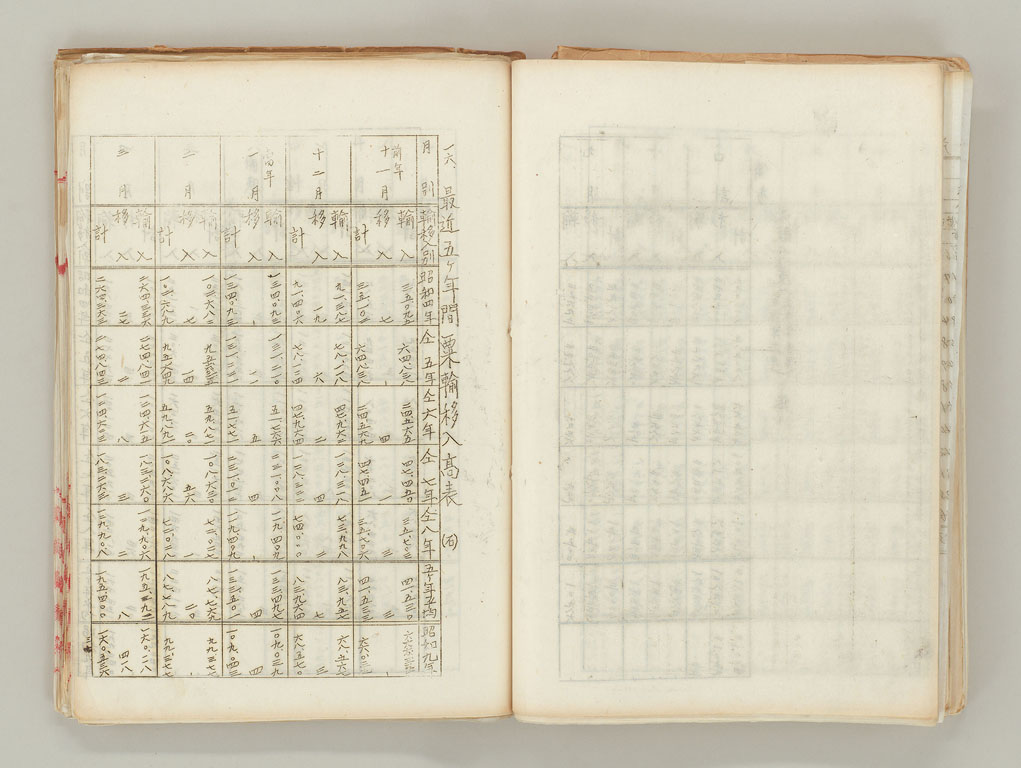 一六、最近五ヶ年間粟輸移入高表 (石)
月別 輸移入別 昭和四年 仝五年 仝六年 仝七年 仝八年 五ヶ年平均 昭和九年
前年十一月 輸入 三五、〇九五 六四、八三八 二四、五六五 四七、四五〇 三五、七〇三 四一、五三〇
移入 七 、 四 一 三 三 、
計 三五、一〇二 六四、八三八 二四、五六九 四七、四五一 三五、七〇六 四一、五三三
十二月 輸入 九一、三八七 七八、一一八 四七、九六二 一二八、三一八 七三、九九八 八三、九五七 六八、五六七
移入 一九 六 二 四 二 七 三
計 九一、四〇六 七八、一二四 四七、九六四 一二八、三二二 七四、〇〇〇 八三、九六四 六八、五七〇
当年一月 輸入 一三四、〇九三 一三一、二一〇 五一、七六六 二三一、〇〇八 一一九、四〇九 一三三、四九七 一〇九、〇三九
移入 、 一一 五 四 、 四 四
計 一三四、〇九三 一三一、二二一 五一、七七一 二三一、〇一二 一一九、四〇九 一三三、五〇一 一〇九、〇四三
二月 輸入 一〇三、六八二 九五、六三五 五九、八七一 一〇八、六三〇 七二、〇二七 八七、七六九 九九、三七七
移入 七 一四 二〇 五六 一 二〇 、
計 一〇三、六八九 九五、六四九 五九、八九一 一〇八、六八六 七二、〇二八 八七、七八九 九九、三七七
三月 輸入 二六四、三三六 二七四、八四一 一二四、六五五 一八三、二六〇 一二九、九〇六 一九五、三九二 一六〇、一二八
移入 二七 二 八 三 二 八 四〇八
計 二六四、三六三 二七四、八四三 一二四、六六三 一八三、二六三 一二九、九〇八 一九五、四〇〇 一六〇、五三六